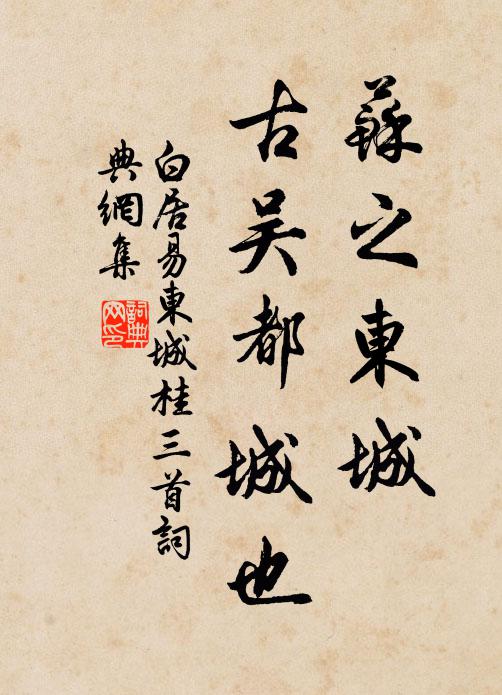 蘇之東城
古吴都城也
白居易東城桂三首詞
典網集
詞典
网印